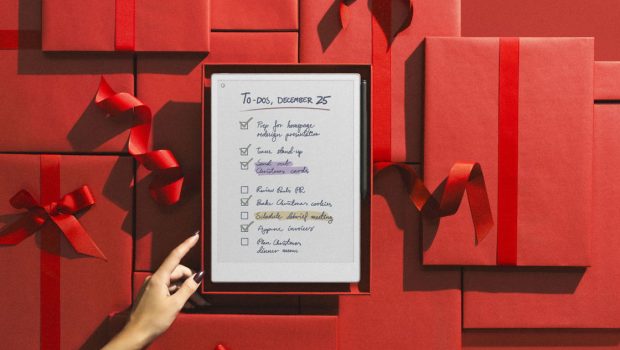 TO-DOS, DECEMBER 25
Prep for homepage
redesign presentation
Team stand-up
Send out
Christmas cards
Review Rob's PR
Bake Christmas cookies
Schedule debrief meeting
Approve invoices
Plan Christmas
dinner menu